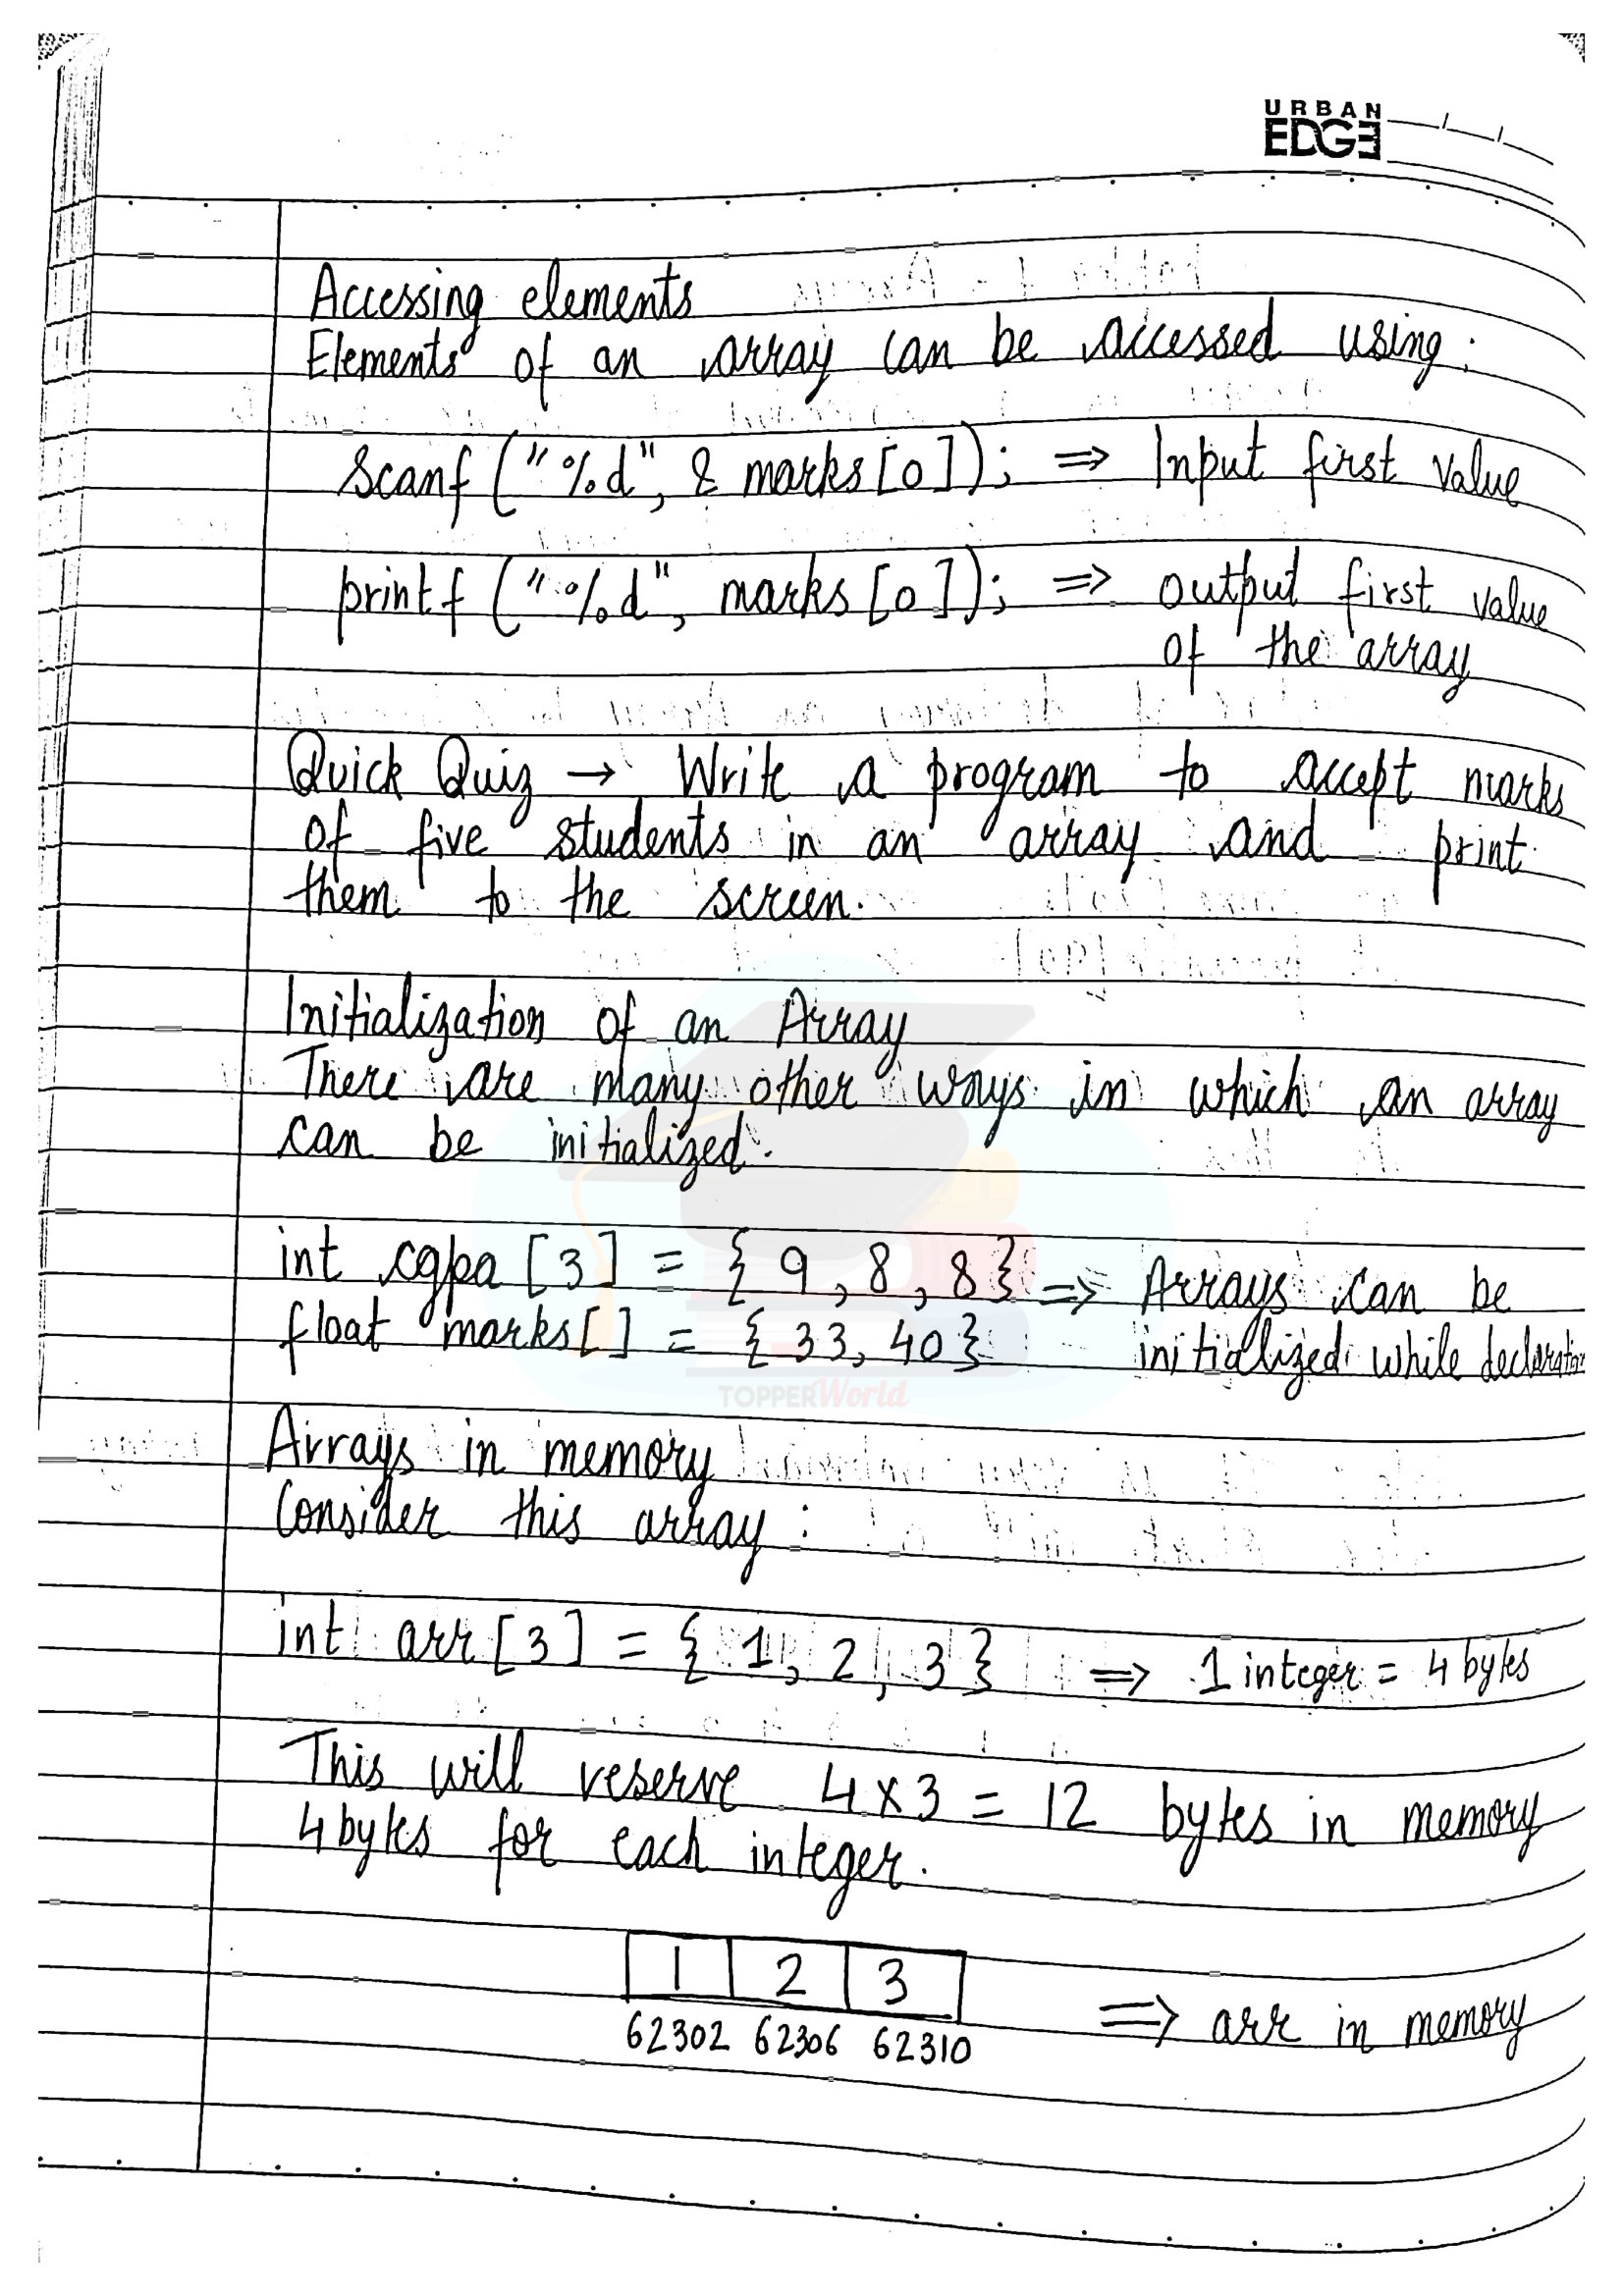 URBAN
EDGE
Accessing elements
Elements of an array can be accessed using:
scanf ("%d", & marks[0]); ⇒ Input first value
printf ("%d", marks[0]); ⇒ output first value
of the array
Quick Quiz → Write a program to accept marks
of five students in an array and print
them to the screen.
Initialization of an Array
There are many other ways in which an array
can be initialized.
int cgpa [3] = { 9, 8, 8} ⇒ Arrays can be
float marks[] = {33, 40} initialized while declaration
TOPPERWorld
Arrays in memory
Consider this array:
int arr[3] = { 1, 2, 3 } ⇒ 1 integer = 4 bytes
This will reserve 4x3 = 12 bytes in memory
4 bytes for each integer.
1 2 3
62302 62306 62310 ⇒ arr in memory